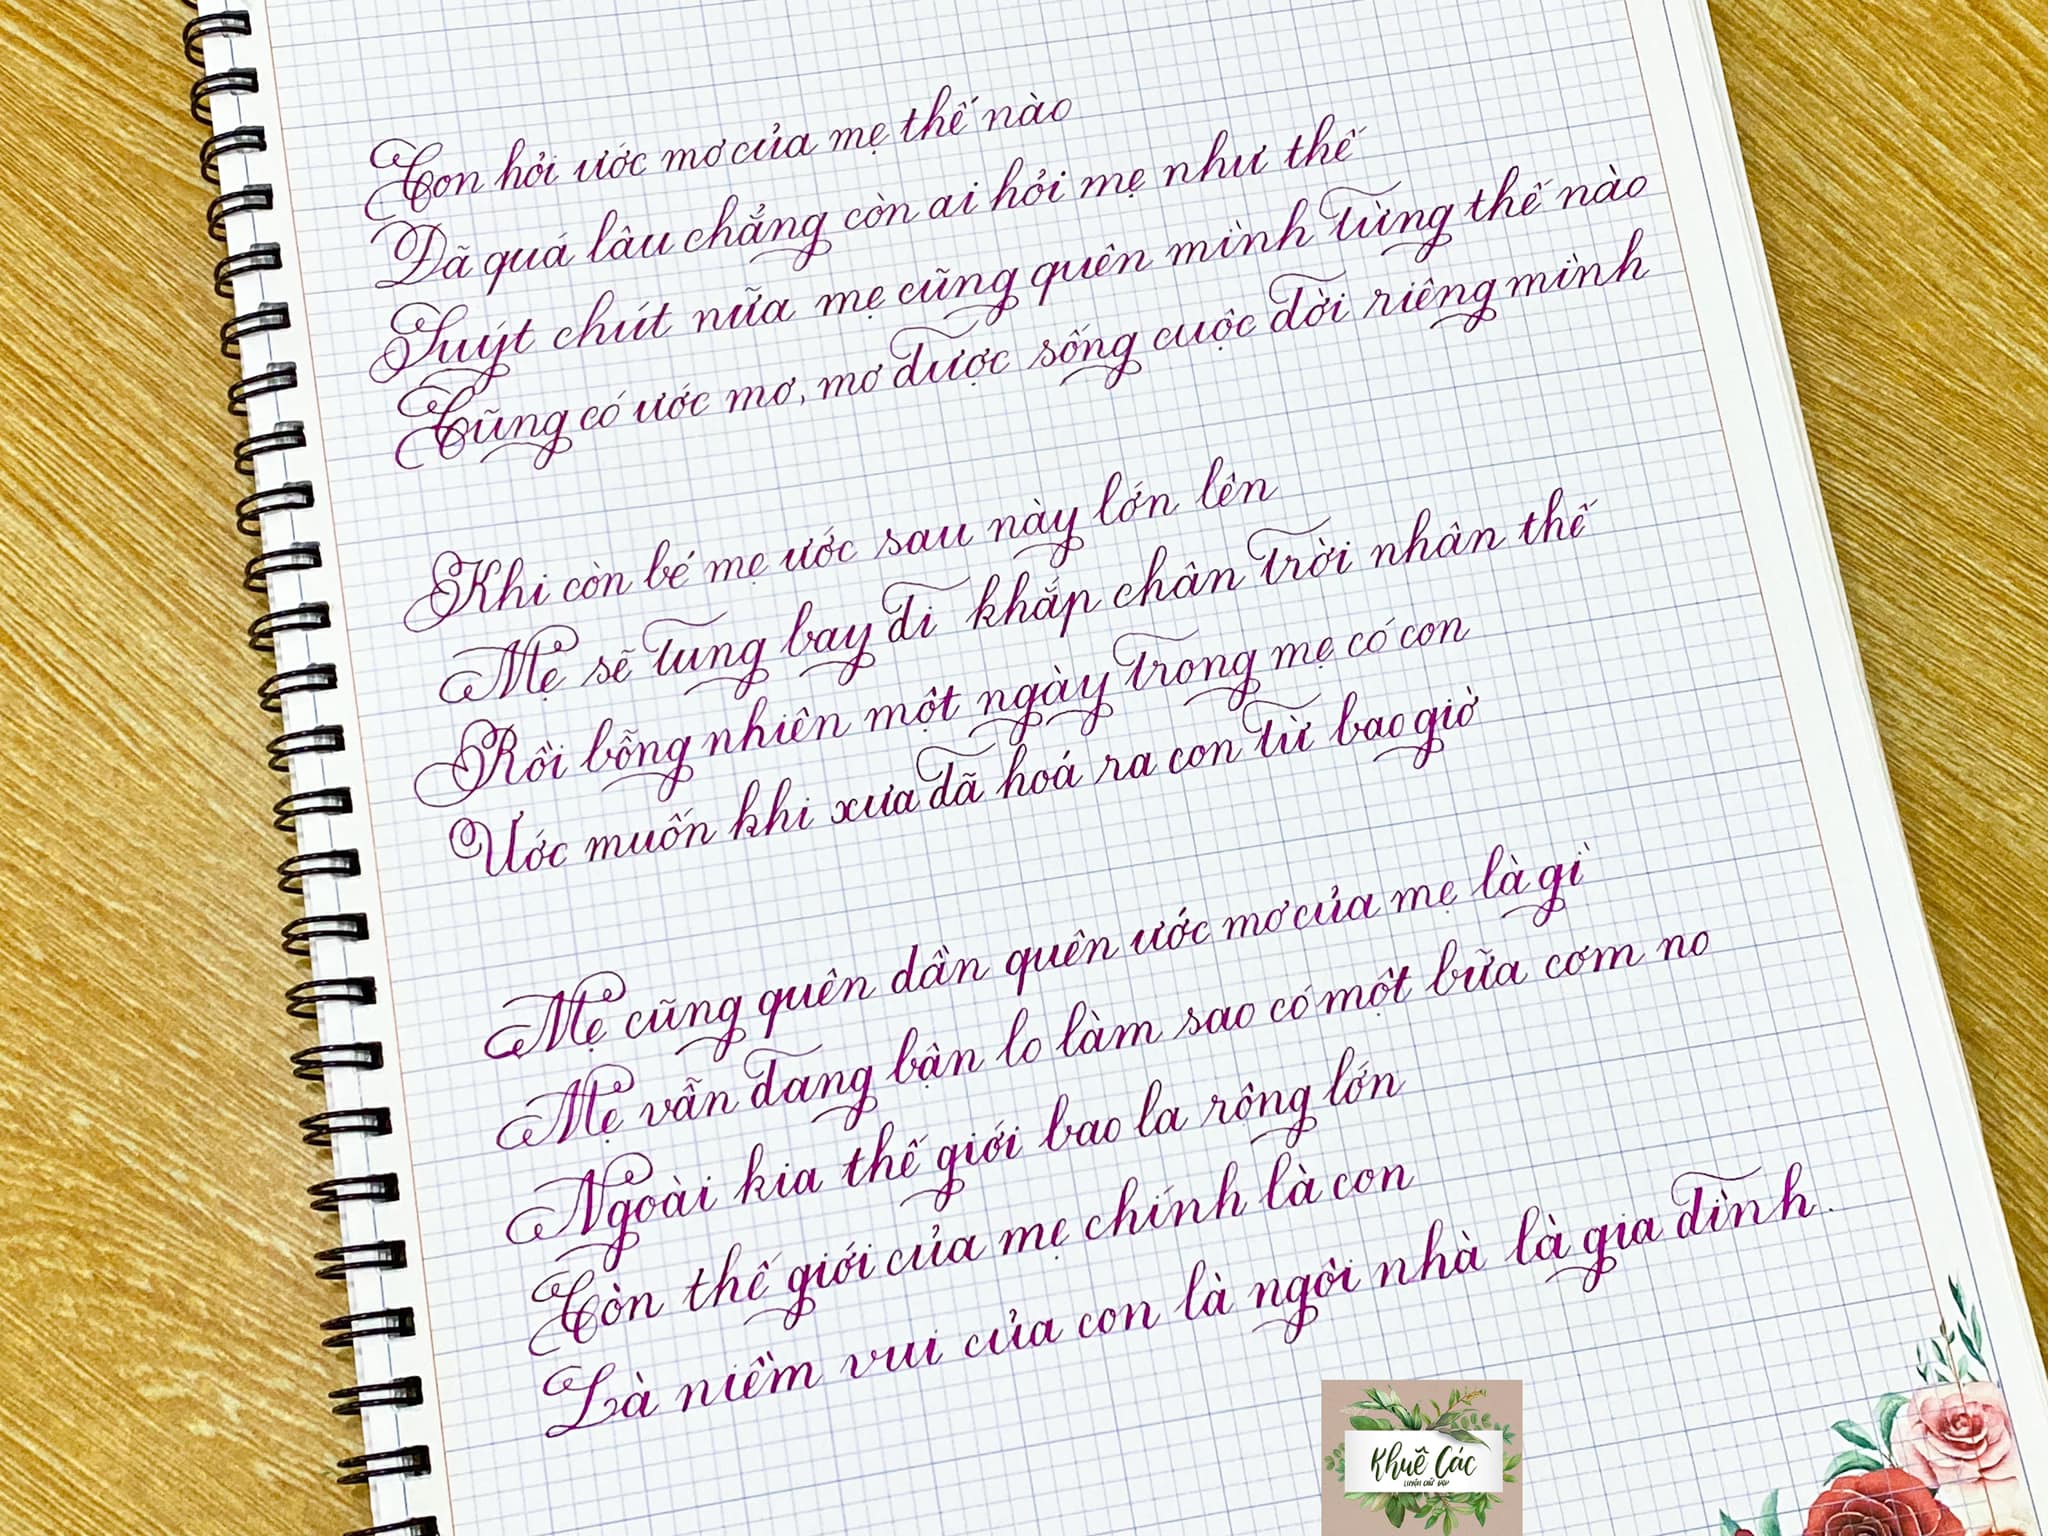 Con hỏi ước mơ của mẹ thế nào
Đã quá lâu chẳng còn ai hỏi mẹ như thế
Suýt chút nữa mẹ cũng quên mình từng thế nào
Cũng có ước mơ, mơ được sống cuộc đời riêng mình
Khi còn bé mẹ ước sau này lớn lên
Mẹ sẽ tung bay đi khắp chân trời nhân thế
Rồi bỗng nhiên một ngày trong mẹ có con
Ước muốn khi xưa đã hoá ra con từ bao giờ
Mẹ cũng quên dần quên ước mơ của mẹ là gì
Mẹ vẫn đang bận lo làm sao có một bữa cơm no
Ngoài kia thế giới bao la rộng lớn
Còn thế giới của mẹ chính là con
Là niềm vui của con là ngôi nhà là gia đình.
Khuê Các
LUYỆN CHỮ ĐẸP